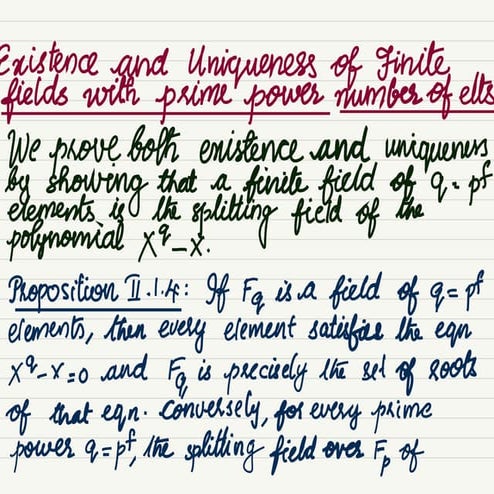 Existence and Uniqueness of Finite
fields with prime power number of elts
We prove both existence and uniqueness
by showing that a finite field of q = p^f
elements is the splitting field of the
polynomial X^q - X.
Proposition II.1.4: If F_q is a field of q = p^f
elements, then every element satisfies the eqn
X^q - X = 0 and F_q is precisely the set of roots
of that eqn. Conversely, for every prime
power q = p^f, the splitting field over F_p of